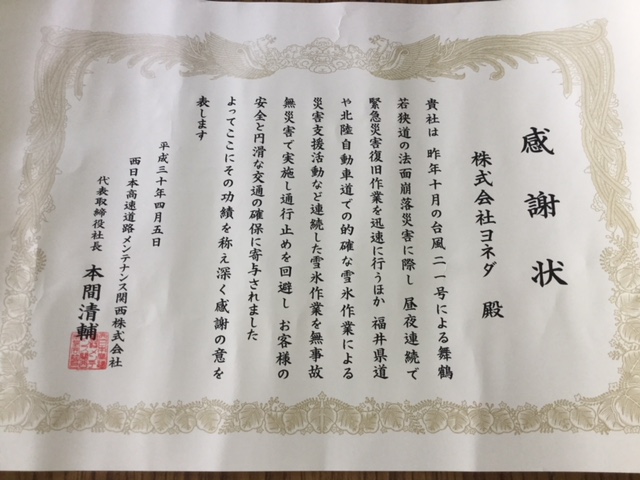 感謝状
株式会社ヨネダ 殿
貴社は 昨年十月の台風二一号による舞鶴
若狭道の法面崩落災害に際し 昼夜連続で
緊急災害復旧作業を迅速に行うほか 福井県道
や北陸自動車道での的確な雪氷作業による
災害支援活動など連続した雪氷作業を無事故
無災害で実施し通行止めを回避し お客様の
安全と円滑な交通の確保に寄与されました
よってここにその功績を称え深く感謝の意を
表します
平成三十年四月五日
西日本高速道路メンテナンス関西株式会社
代表取締役社長 本間清輔